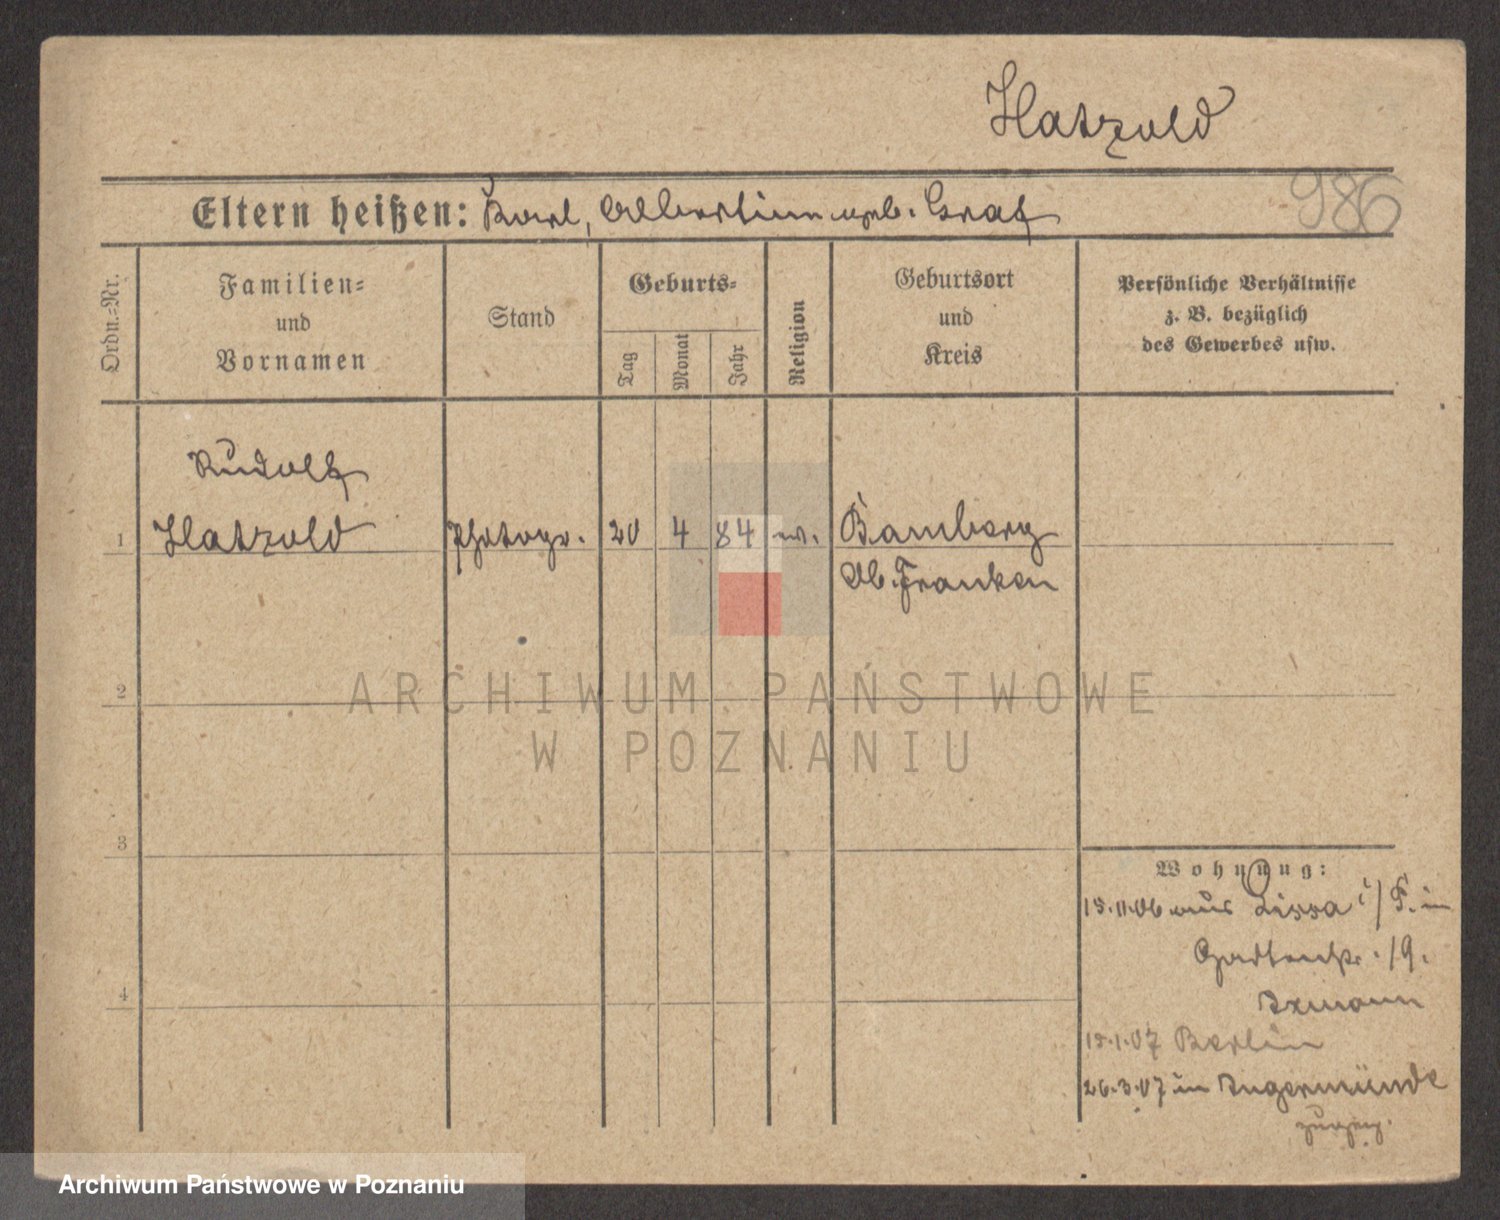 Hatzold
986
Eltern heißen: Karl, Albertine geb. Graf
Ordn.=Nr.
Familien=
und
Vornamen
Stand
Geburts=
Tag
Monat
Jahr
Religion
Geburtsort
und
Kreis
Persönliche Verhältnisse
z. B. bezüglich
des Gewerbes usw.
Rudolf
1 Hatzold Photogr. 20 4 84 ev. Bamberg
Ob. Franken
2
ARCHIWUM PAŃSTWOWE
W POZNANIU
3
Wohnung:
15.11.06 aus Lissa i/P. in
19.
4
15.1.07 Berlin
26.3.07 in Angermünde
Archiwum Państwowe w Poznaniu